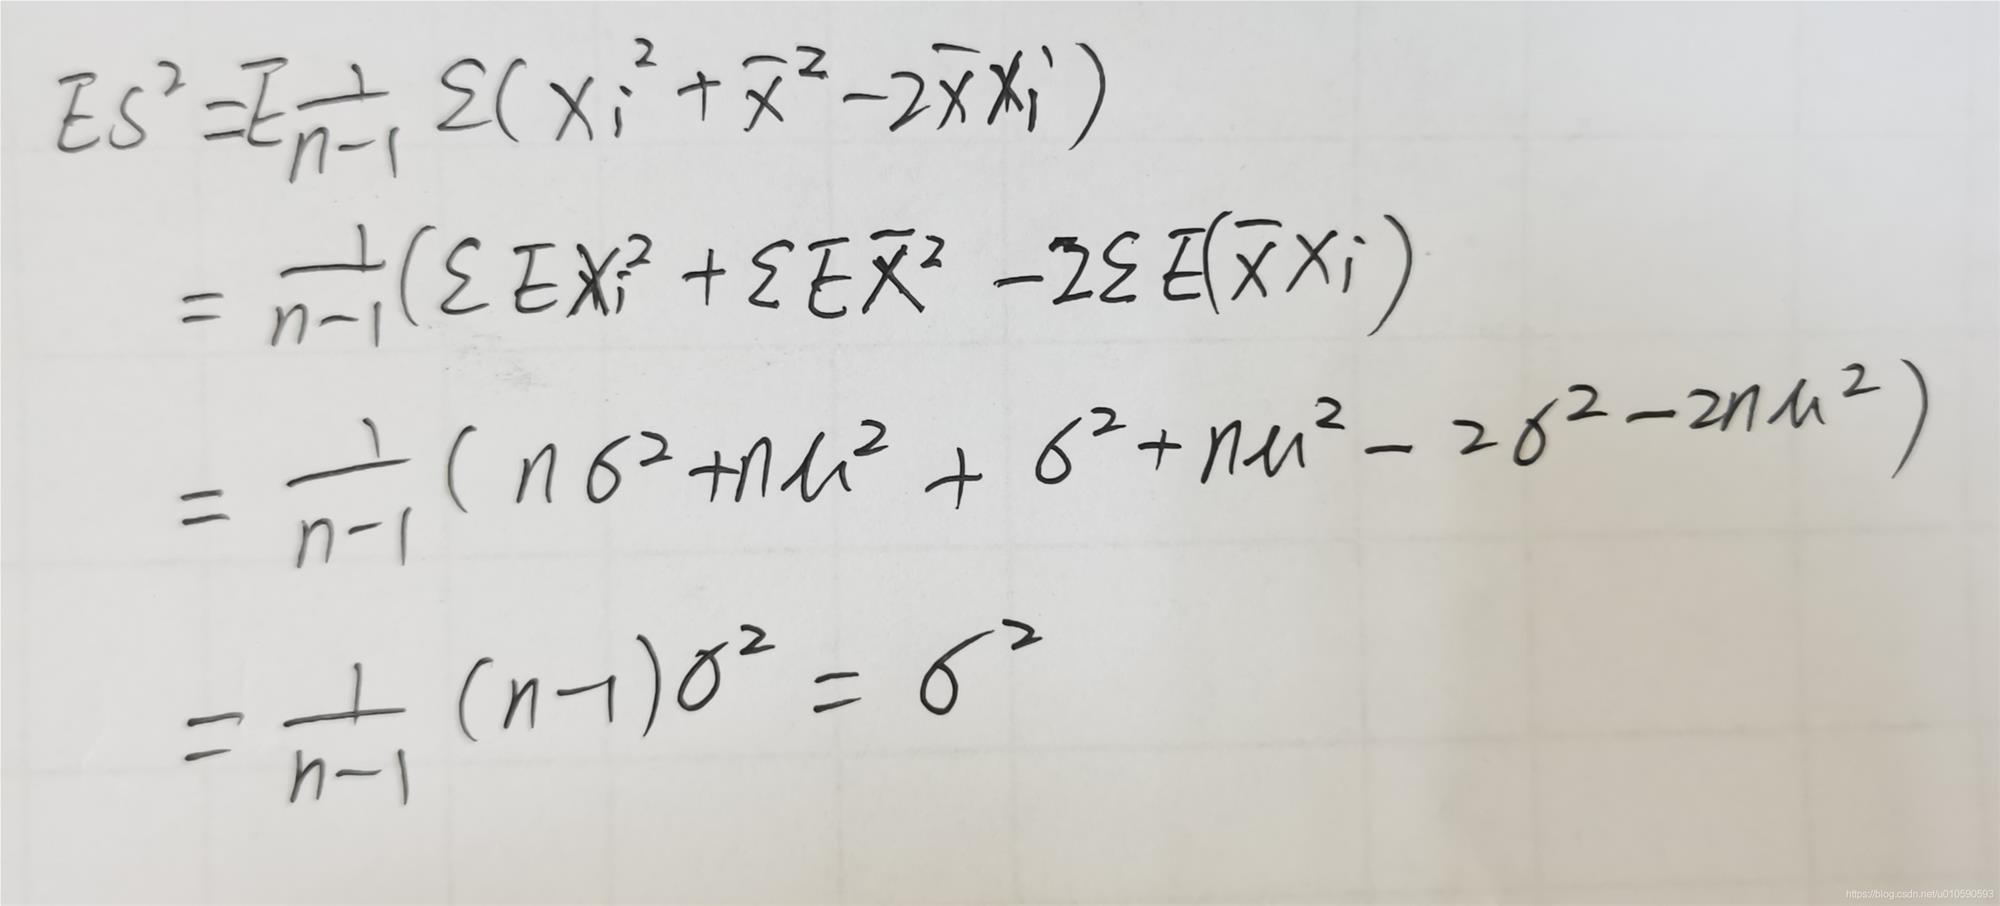 ES² = E 1/(n-1) Σ(Xi² + X̄² - 2X̄Xi)
= 1/(n-1) (ΣEXi² + ΣEX̄² - 2ΣE(X̄Xi)
= 1/(n-1) (nσ² + nμ² + σ² + nμ² - 2σ² - 2nμ²)
= 1/(n-1) (n-1)σ² = σ²
https://blog.csdn.net/u010590593